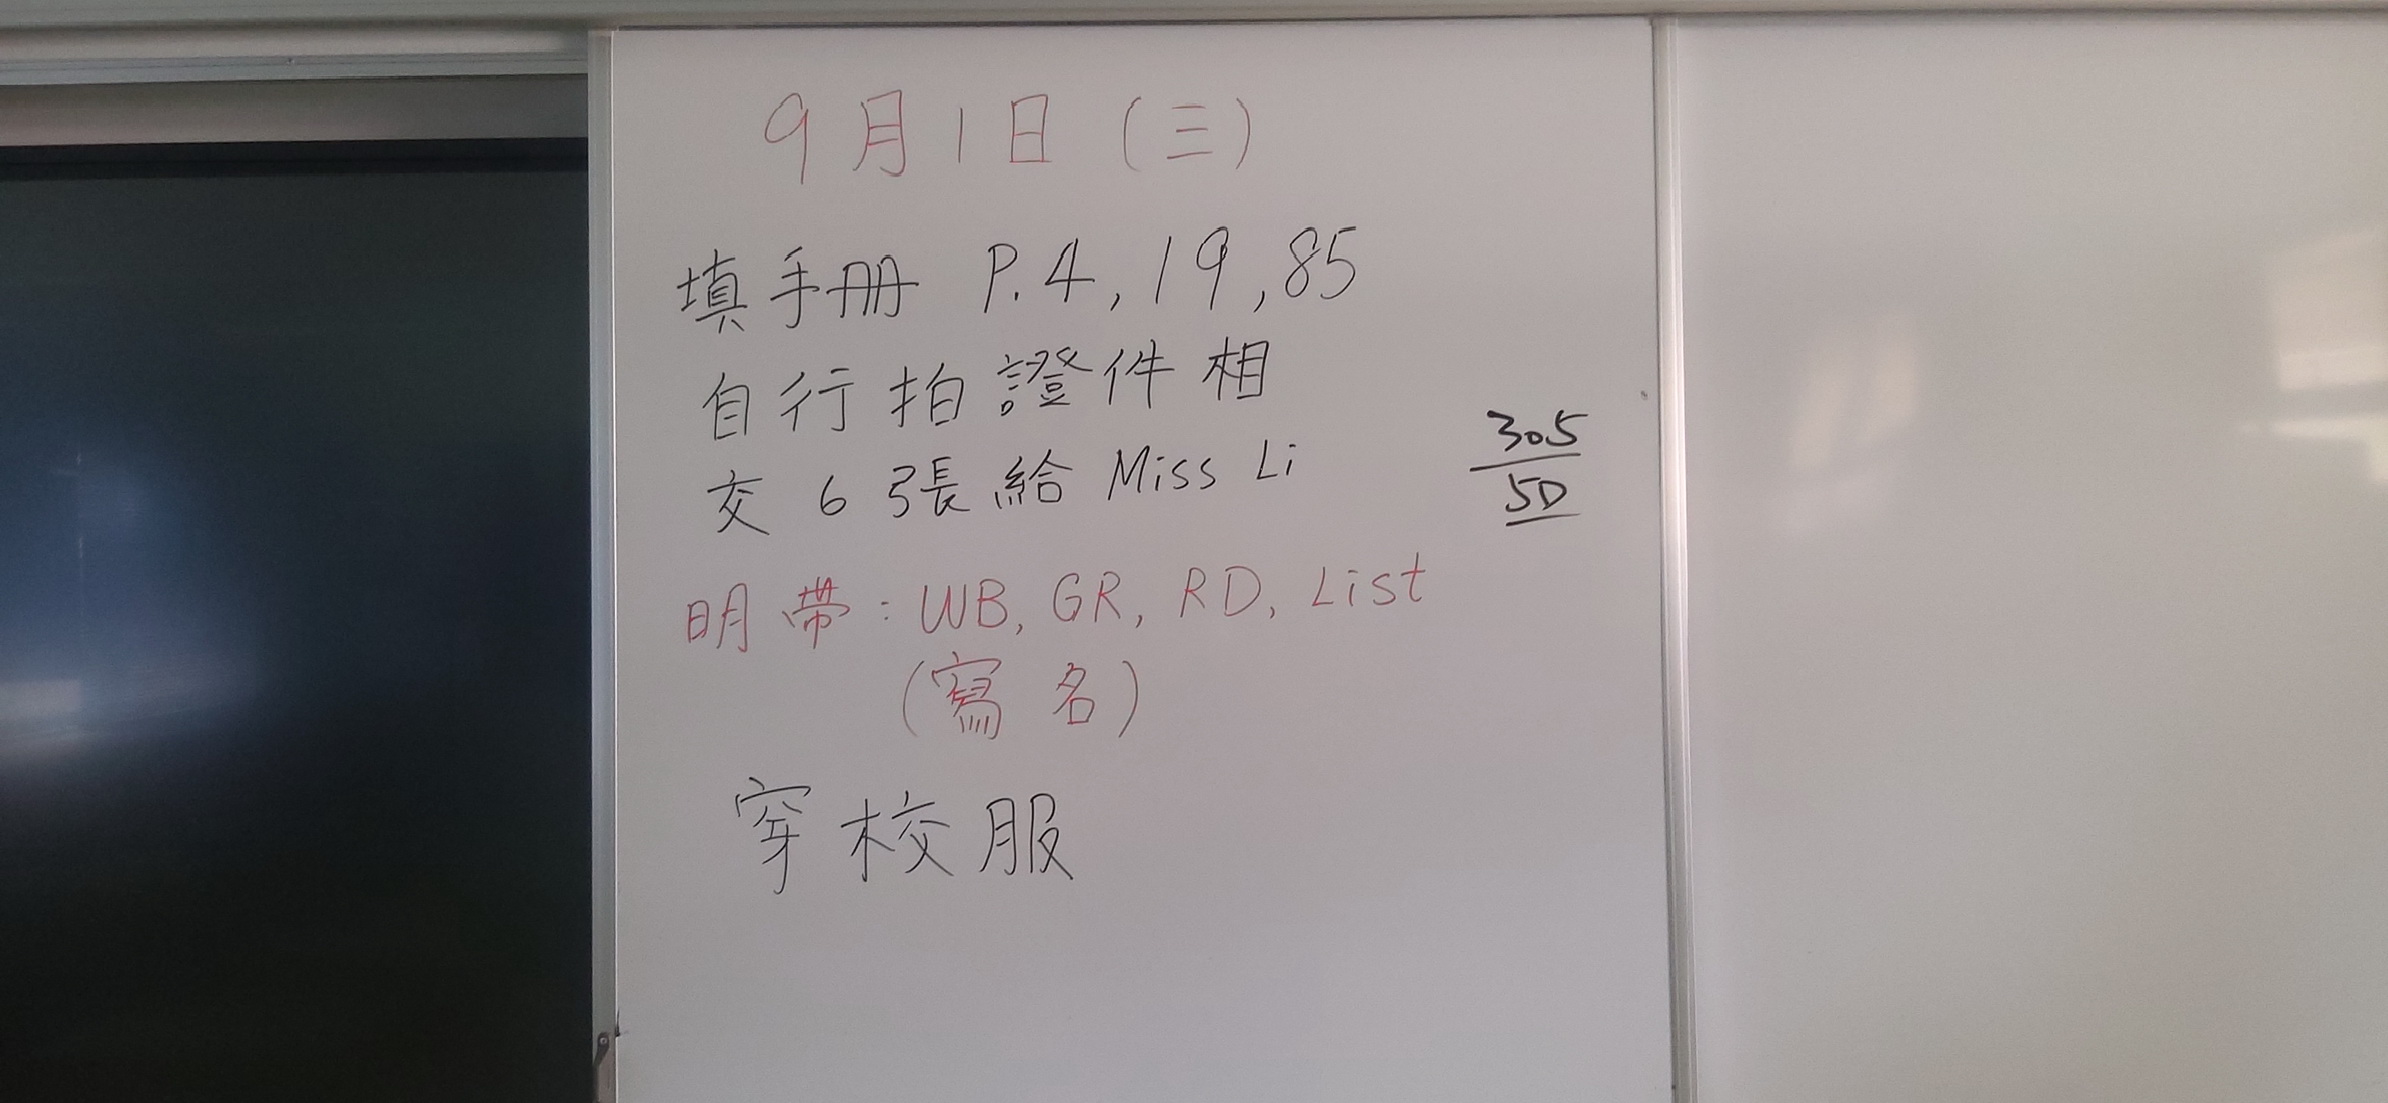 9月1日(三)
填手册 P.4,19,85
自行拍證件相
交6張給 Miss Li
305
5D
明帶:WB, GR, RD, List
(寫名)
穿校服